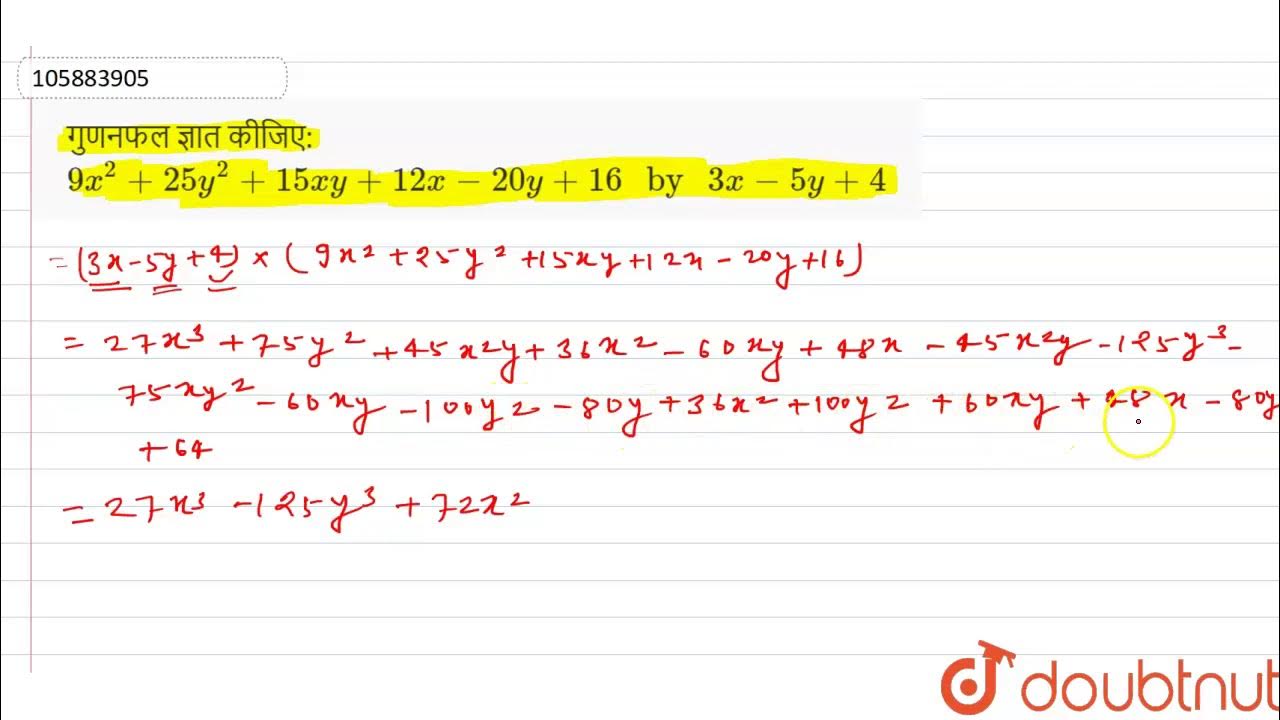 105883905
गुणनफल ज्ञात कीजिए:
9x² + 25y² + 15xy + 12x − 20y + 16 by 3x − 5y + 4
= (3x-5y+4) × (9x² + 25y² + 15xy + 12x - 20y + 16)
= 27x³ + 75y² + 45x²y + 36x² - 60xy + 48x - 45x²y - 125y³ -
75xy² - 60xy - 100y² - 80y + 36x² + 100y² + 60xy + 48x - 80y
+ 64
= 27x³ - 125y³ + 72x²
doubtnut